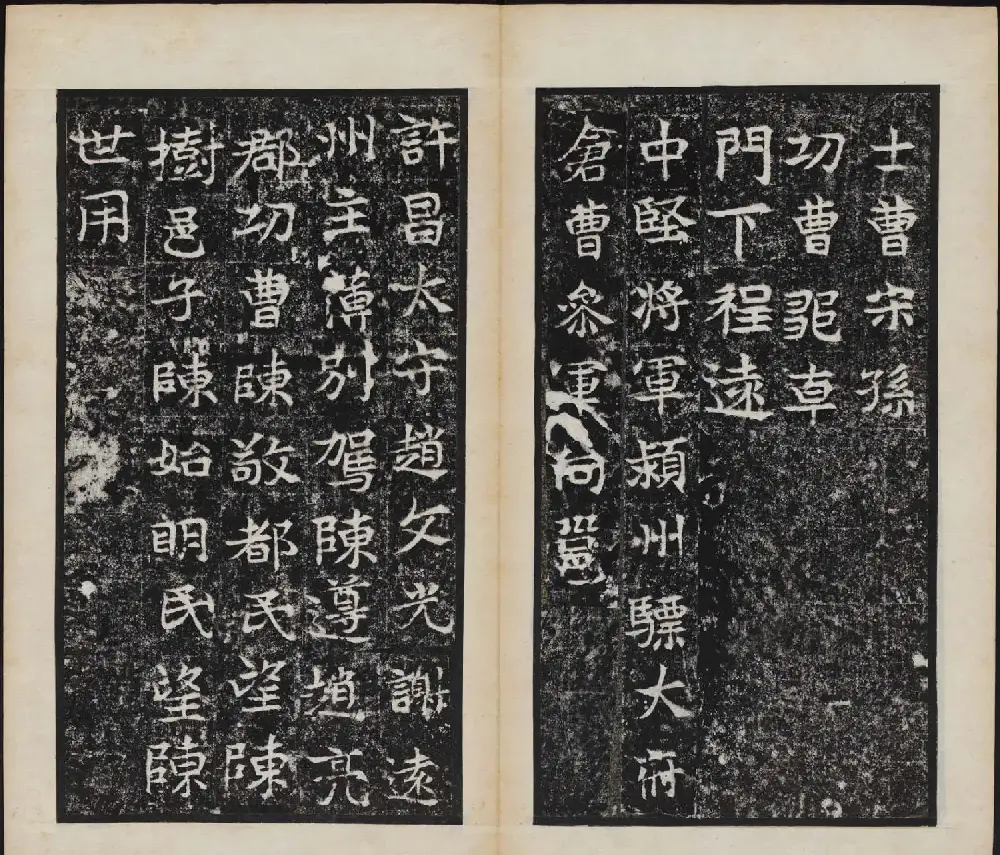 士曹宋孫
功曹卓
門下程遠
中堅將軍潁州驃大府
倉曹參軍向邕
許昌太守趙文光謝遠
州主薄別駕陳遵趙亮
郡功曹陳敬都民望陳
樹邑子陳始明民望陳
世用